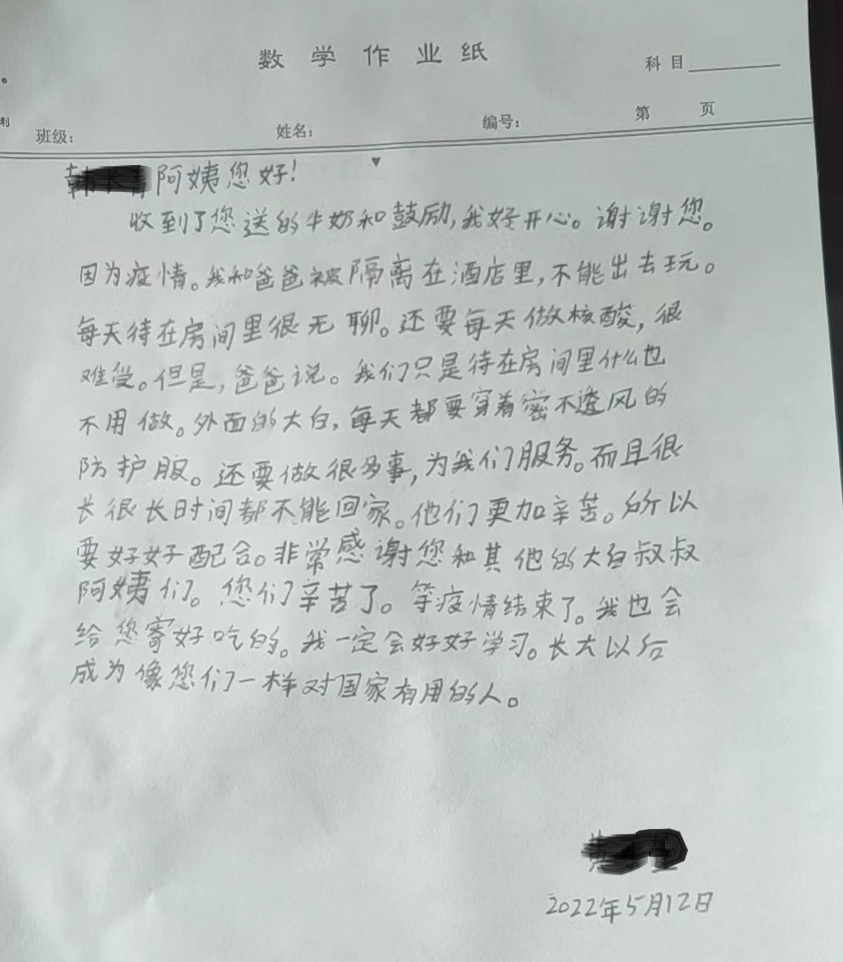 数学作业纸
科目
班级：
姓名：
编号：
第 页
阿姨您好！
收到了您送的牛奶和鼓励，我好开心。谢谢您。
因为疫情。我和爸爸被隔离在酒店里，不能出去玩。
每天待在房间里很无聊。还要每天做核酸，很
难受。但是，爸爸说。我们只是待在房间里什么也
不用做。外面的大白，每天都要穿着密不透风的
防护服。还要做很多事，为我们服务。而且很
长很长时间都不能回家。他们更加辛苦。所以
要好好配合。非常感谢您和其他的大白叔叔
阿姨们。您们辛苦了。等疫情结束了。我也会
给您寄好吃的。我一定会好好学习。长大以后
成为像您们一样对国家有用的人。
2022年5月12日